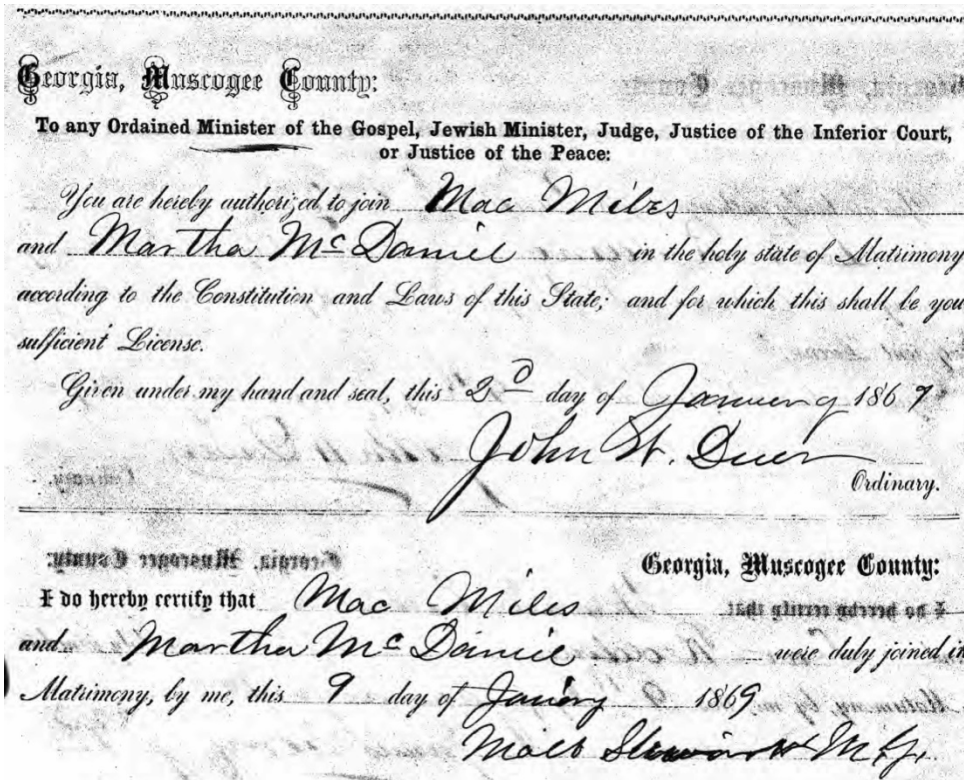 Georgia, Muscogee County:
To any Ordained Minister of the Gospel, Jewish Minister, Judge, Justice of the Inferior Court,
or Justice of the Peace:
You are hereby authorized to join Mac Miles
and Martha McDaniel in the holy state of Matrimony
according to the Constitution and Laws of this State; and for which this shall be you
sufficient License.
Given under my hand and seal, this 2d day of January 1869
John W. Duer
Ordinary.
Georgia, Muscogee County:
I do hereby certify that Mac Miles
and Martha McDaniel were duly joined in
Matrimony, by me, this 9 day of January 1869
Stewart M.G.